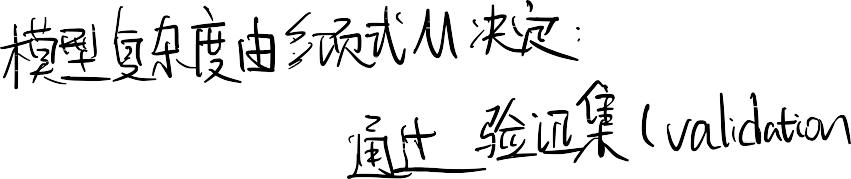 模型复杂度由多项式M决定:
通过 验证集(validation